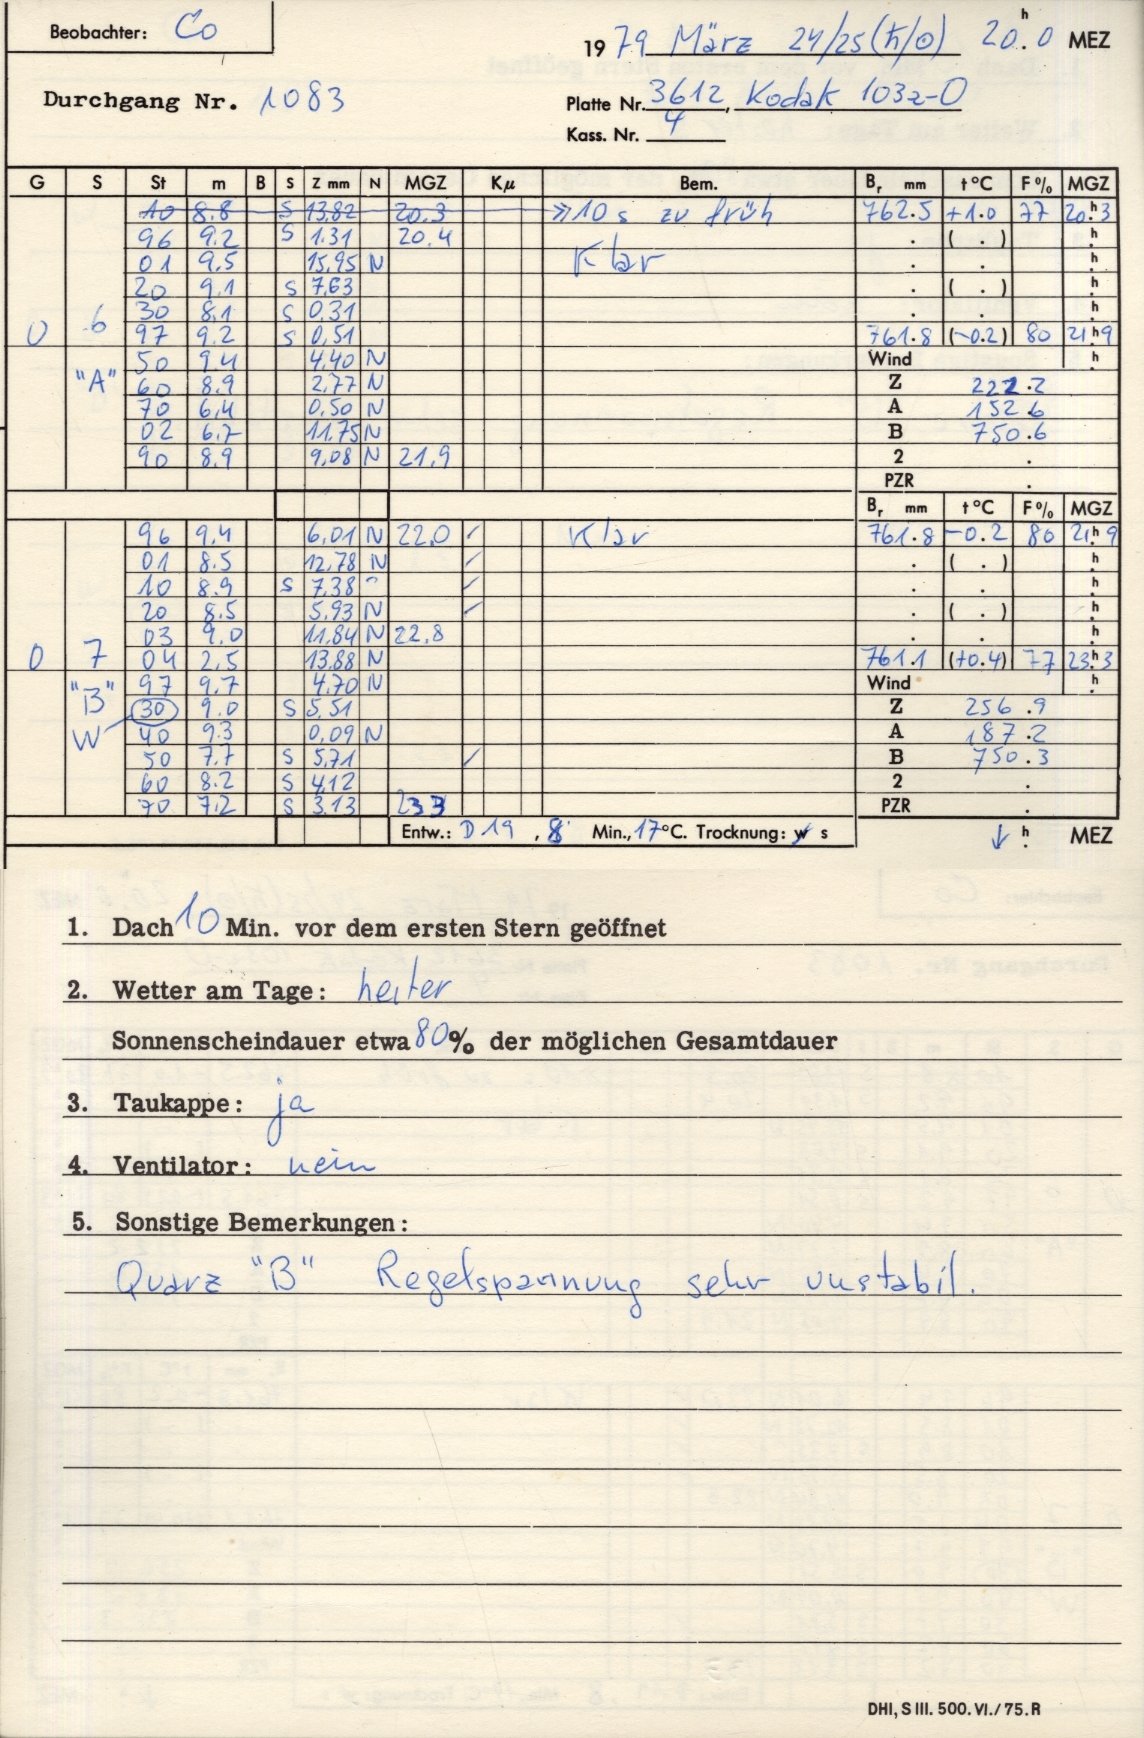 Beobachter: Co
1979 März 24/25 (ħ/⊙) 20.h0 MEZ
Durchgang Nr. 1083
Platte Nr. 3612, Kodak 103a-O
Kass. Nr. 4
G S St m B S Z mm N MGZ Kμ Bem. Br mm t°C F% MGZ
10 8.8 S 13,82 20.3 »10 s zu früh 762.5 +1.0 77 20.h3
96 9.2 S 1.31 20.4 . ( . ) h
01 9,5 15,95 N Klar . . h
20 9,1 S 7,63 . ( . ) h
30 8,1 S 0,31 . . h
0 6 97 9.2 S 0,51 761.8 (-0.2) 80 21h9
50 9.4 4,40 N Wind h
"A" 60 8.9 2,77 N Z 222.2
70 6,4 0,50 N A 152.6
02 6.7 11.75 N B 750.6
90 8.9 9,08 N 21,9 2 .
PZR .
Br mm t°C F% MGZ
96 9.4 6,01 N 22.0 / Klar 761.8 -0.2 80 21h9
01 8.5 12,78 N / . ( . ) h
10 8.9 S 7,38 / . . h
20 8.5 5,93 N / . ( . ) h
03 9.0 11,84 N 22,8 . . h
0 7 04 2,5 13,88 N 761.1 (+0.4) 77 23h3
"B" 97 9.7 4.70 N Wind h
W 30 9.0 S 5,51 Z 256.9
40 9.3 0,09 N A 187.2
50 7.7 S 5,71 / B 750.3
60 8.2 S 4,12 2 .
70 7.2 S 3.13 233 PZR .
Entw.: D19, 8 Min., 17°C. Trocknung: w s ↓ h MEZ
1. Dach 10 Min. vor dem ersten Stern geöffnet
2. Wetter am Tage: heiter
Sonnenscheindauer etwa 80% der möglichen Gesamtdauer
3. Taukappe: ja
4. Ventilator: nein
5. Sonstige Bemerkungen:
Quarz "B" Regelspannung sehr unstabil.
DHI, S III. 500. VI./75. R